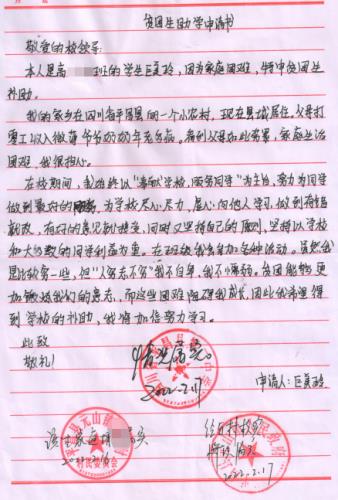 贫困生助学申请书
敬爱的校领导:
本人是高 班的学生巨真玲,因为家庭困难,特申贫困生
补助。
我的家乡在四川省平昌县的一个小农村,现在县城居住。父母打
零工收入微薄,爷爷奶奶年老多病。看到父母如此劳累,家庭生活
困难,我很担心。
在校期间,我始终以“奉献学校,服务同学”为主旨,努力为同学
做到最好的服务,为学校尽心尽力,虚心向他人学习,做到有错
就改,有好的意见则接受,同时又坚持自己的原则,坚持以学校
和大多数的同学利益为重。在班级我参加各种活动。虽然我
是比较穷一些,但“人穷志不穷”我不自卑,我不懒弱。贫困能够更
加锻炼我们的意志,而这些困难 碍我成长,因此我希望得
到学校的补助,我将加倍努力学习。
此致
敬礼
申请人:巨真玲
2022.2.17
元山镇
村民委员会
2022.2.16
2022.2.17